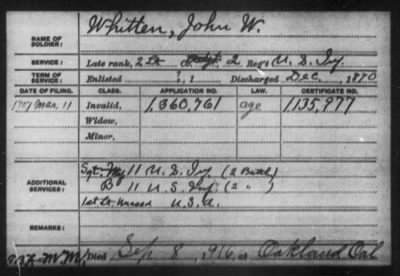 NAME OF SOLDIER: Whitten, John W.
SERVICE: Late rank, 2 Lt 2 Reg't U. S. Inf.
TERM OF SERVICE: Enlisted ?, 1 Discharged Dec. , 1870
DATE OF FILING. CLASS. APPLICATION NO. LAW. CERTIFICATE NO.
1907 Mar, 11 Invalid, 1,360,761 age 1,135,977
Widow,
Minor,
ADDITIONAL SERVICES: Sgt. Maj 11 U. S. Inf (2 Battl)
B 11 U. S. Inf. (2 " )
1st Lt. Unassd U.S.A.
REMARKS:
Died Sep 8, 1916, at Oakland Cal